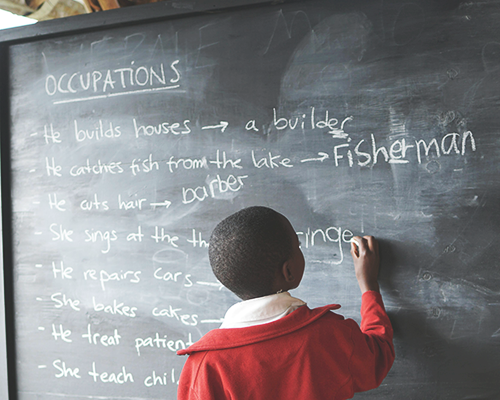 OCCUPATIONS
- He builds houses → a builder
- He catches fish from the lake → Fisherman
- He cuts hair → barber
- She sings at the
- He repairs cars →
- She bakes cakes →
- He treat patient
- She teach